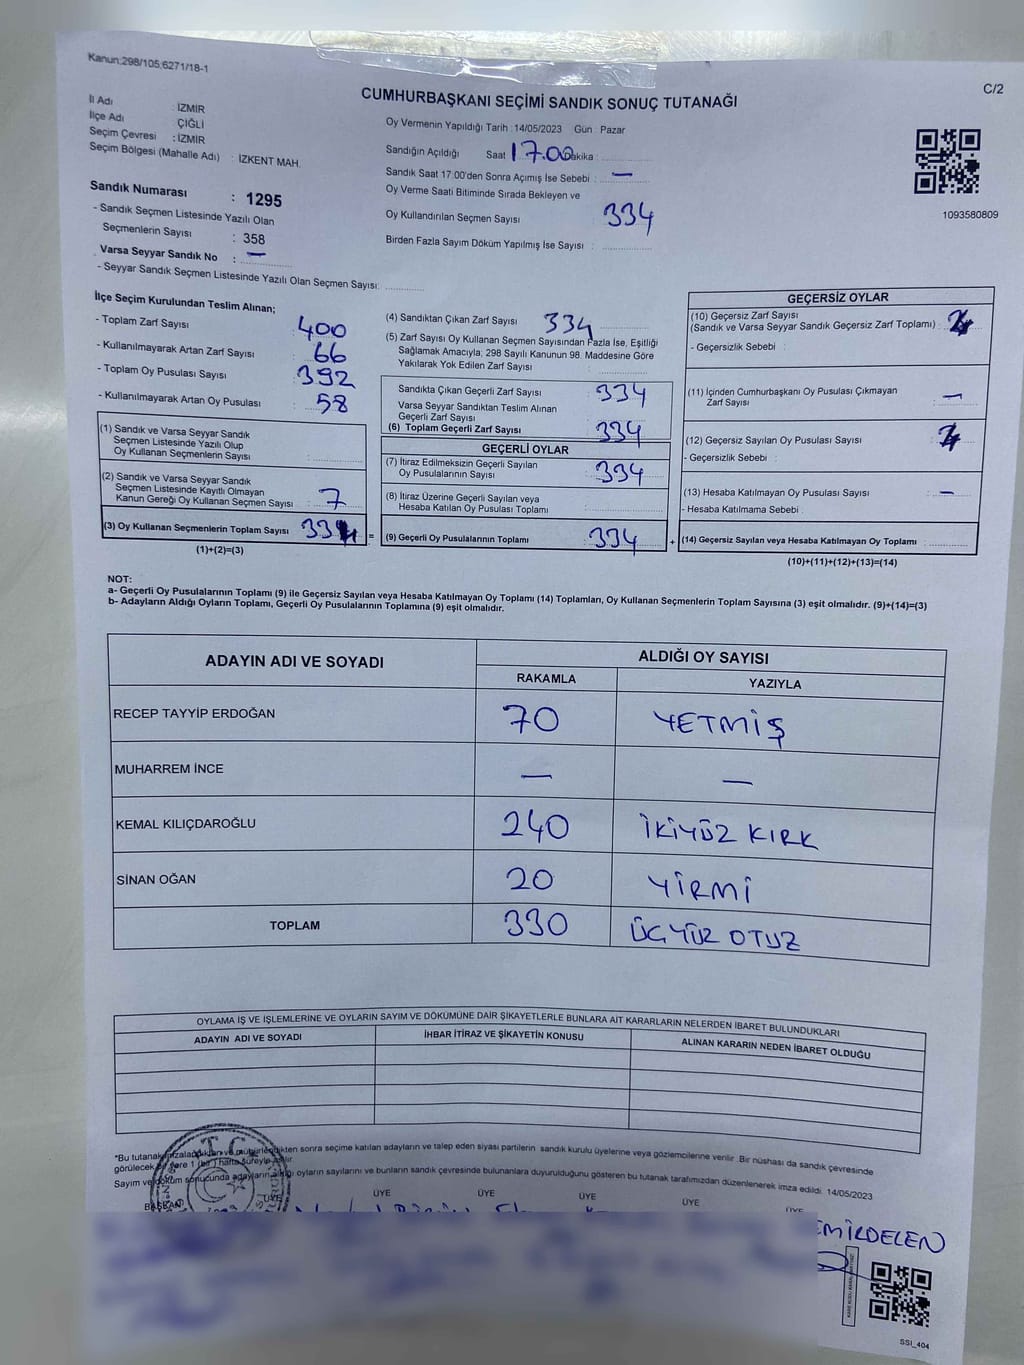 Kanun;298/105;6271/18-1
C/2
CUMHURBAŞKANI SEÇİMİ SANDIK SONUÇ TUTANAĞI
İl Adı : İZMİR
İlçe Adı : ÇİĞLİ
Seçim Çevresi : İZMİR
Seçim Bölgesi (Mahalle Adı) : İZKENT MAH.
Oy Vermenin Yapıldığı Tarih : 14/05/2023 Gün : Pazar
Sandığın Açıldığı Saat 17.00 Dakika :
Sandık Saat 17:00'den Sonra Açımış İse Sebebi : —
Oy Verme Saati Bitiminde Sırada Bekleyen ve
Oy Kullandırılan Seçmen Sayısı 334
Birden Fazla Sayım Döküm Yapılmış İse Sayısı :
1093580809
Sandık Numarası : 1295
- Sandık Seçmen Listesinde Yazılı Olan
Seçmenlerin Sayısı : 358
Varsa Seyyar Sandık No : —
- Seyyar Sandık Seçmen Listesinde Yazılı Olan Seçmen Sayısı:
İlçe Seçim Kurulundan Teslim Alınan;
- Toplam Zarf Sayısı : 400
- Kullanılmayarak Artan Zarf Sayısı : 66
- Toplam Oy Pusulası Sayısı : 392
- Kullanılmayarak Artan Oy Pusulası : 58
(1) Sandık ve Varsa Seyyar Sandık
Seçmen Listesinde Yazılı Olup
Oy Kullanan Seçmenlerin Sayısı :
(2) Sandık ve Varsa Seyyar Sandık
Seçmen Listesinde Kayıtlı Olmayan
Kanun Gereği Oy Kullanan Seçmen Sayısı : 7
(3) Oy Kullanan Seçmenlerin Toplam Sayısı 334 =
(1)+(2)=(3)
(4) Sandıktan Çıkan Zarf Sayısı 334
(5) Zarf Sayısı Oy Kullanan Seçmen Sayısından Fazla İse, Eşitliği
Sağlamak Amacıyla; 298 Sayılı Kanunun 98. Maddesine Göre
Yakılarak Yok Edilen Zarf Sayısı :
Sandıkta Çıkan Geçerli Zarf Sayısı : 334
Varsa Seyyar Sandıktan Teslim Alınan
Geçerli Zarf Sayısı :
(6) Toplam Geçerli Zarf Sayısı : 334
GEÇERLİ OYLAR
(7) İtiraz Edilmeksizin Geçerli Sayılan
Oy Pusulalarının Sayısı : 334
(8) İtiraz Üzerine Geçerli Sayılan veya
Hesaba Katılan Oy Pusulası Toplamı :
(9) Geçerli Oy Pusulalarının Toplamı : 334 +
GEÇERSİZ OYLAR
(10) Geçersiz Zarf Sayısı
(Sandık ve Varsa Seyyar Sandık Geçersiz Zarf Toplamı) :
- Geçersizlik Sebebi :
(11) İçinden Cumhurbaşkanı Oy Pusulası Çıkmayan
Zarf Sayısı : —
(12) Geçersiz Sayılan Oy Pusulası Sayısı :
- Geçersizlik Sebebi :
(13) Hesaba Katılmayan Oy Pusulası Sayısı : —
- Hesaba Katılmama Sebebi :
(14) Geçersiz Sayılan veya Hesaba Katılmayan Oy Toplamı :
(10)+(11)+(12)+(13)=(14)
NOT:
a- Geçerli Oy Pusulalarının Toplamı (9) ile Geçersiz Sayılan veya Hesaba Katılmayan Oy Toplamı (14) Toplamları, Oy Kullanan Seçmenlerin Toplam Sayısına (3) eşit olmalıdır. (9)+(14)=(3)
b- Adayların Aldığı Oyların Toplamı, Geçerli Oy Pusulalarının Toplamına (9) eşit olmalıdır.
ADAYIN ADI VE SOYADI ALDIĞI OY SAYISI
RAKAMLA YAZIYLA
RECEP TAYYİP ERDOĞAN 70 YETMİŞ
MUHARREM İNCE — —
KEMAL KILIÇDAROĞLU 240 İKİYÜZ KIRK
SİNAN OĞAN 20 YİRMİ
TOPLAM 330 ÜÇYÜZ OTUZ
OYLAMA İŞ VE İŞLEMLERİNE VE OYLARIN SAYIM VE DÖKÜMÜNE DAİR ŞİKAYETLERLE BUNLARA AİT KARARLARIN NELERDEN İBARET BULUNDUKLARI
ADAYIN ADI VE SOYADI İHBAR İTİRAZ VE ŞİKAYETİN KONUSU ALINAN KARARIN NEDEN İBARET OLDUĞU
*Bu tutanak imzaladıktan ve mühürlendikten sonra seçime katılan adayların ve talep eden siyasi partilerin sandık kurulu üyelerine veya gözlemcilerine verilir. Bir nüshası da sandık çevresinde
görülecek bir yere 1 (bir) hafta süreyle asılır.
Sayım ve döküm sonucunda adayların aldığı oyların sayılarını ve bunların sandık çevresinde bulunanlara duyurulduğunu gösteren bu tutanak tarafımızdan düzenlenerek imza edildi. 14/05/2023
T.C.
BAŞKAN ÜYE ÜYE ÜYE ÜYE ÜYE ÜYE
SSI_404